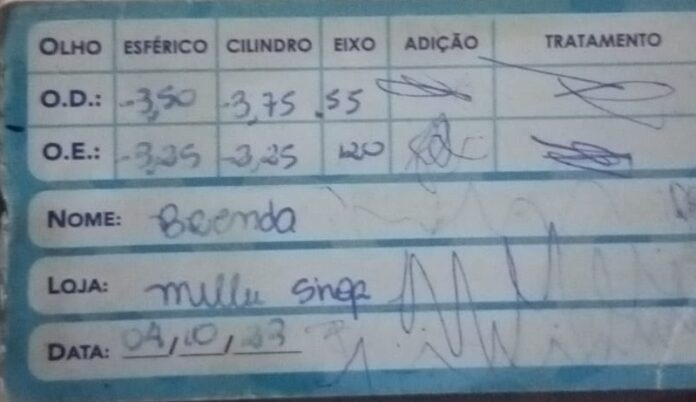 OLHO ESFÉRICO CILINDRO EIXO ADIÇÃO TRATAMENTO
O.D.: -3,50 -3,75 55
O.E.: -3,25 -3,25 120
NOME: Brenda
LOJA: Sinop
DATA: 04/10/23